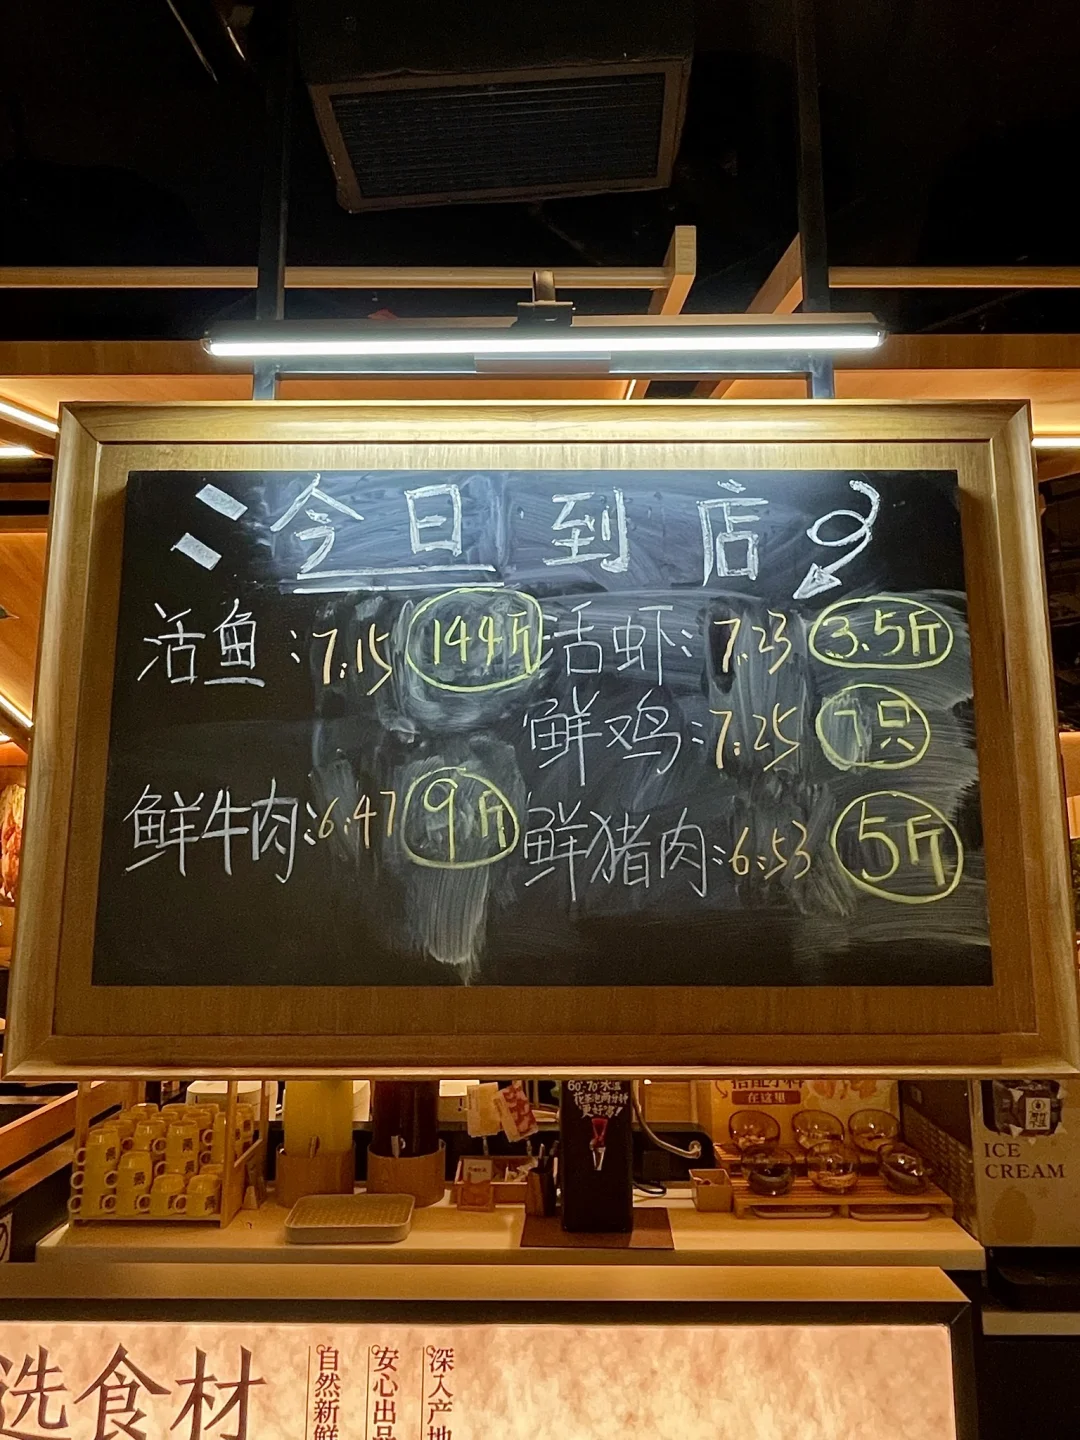 今日到店
活鱼:7:15 144斤 活虾:7:23 3.5斤
鲜鸡:7:25 7只
鲜牛肉:6:47 9斤 鲜猪肉:6:53 5斤
60°-70°水温
花茶泡两分钟
更好喝!
搭配小料
在这里
ICE
CREAM
选食材
自然新鲜
安心出品
深入产地